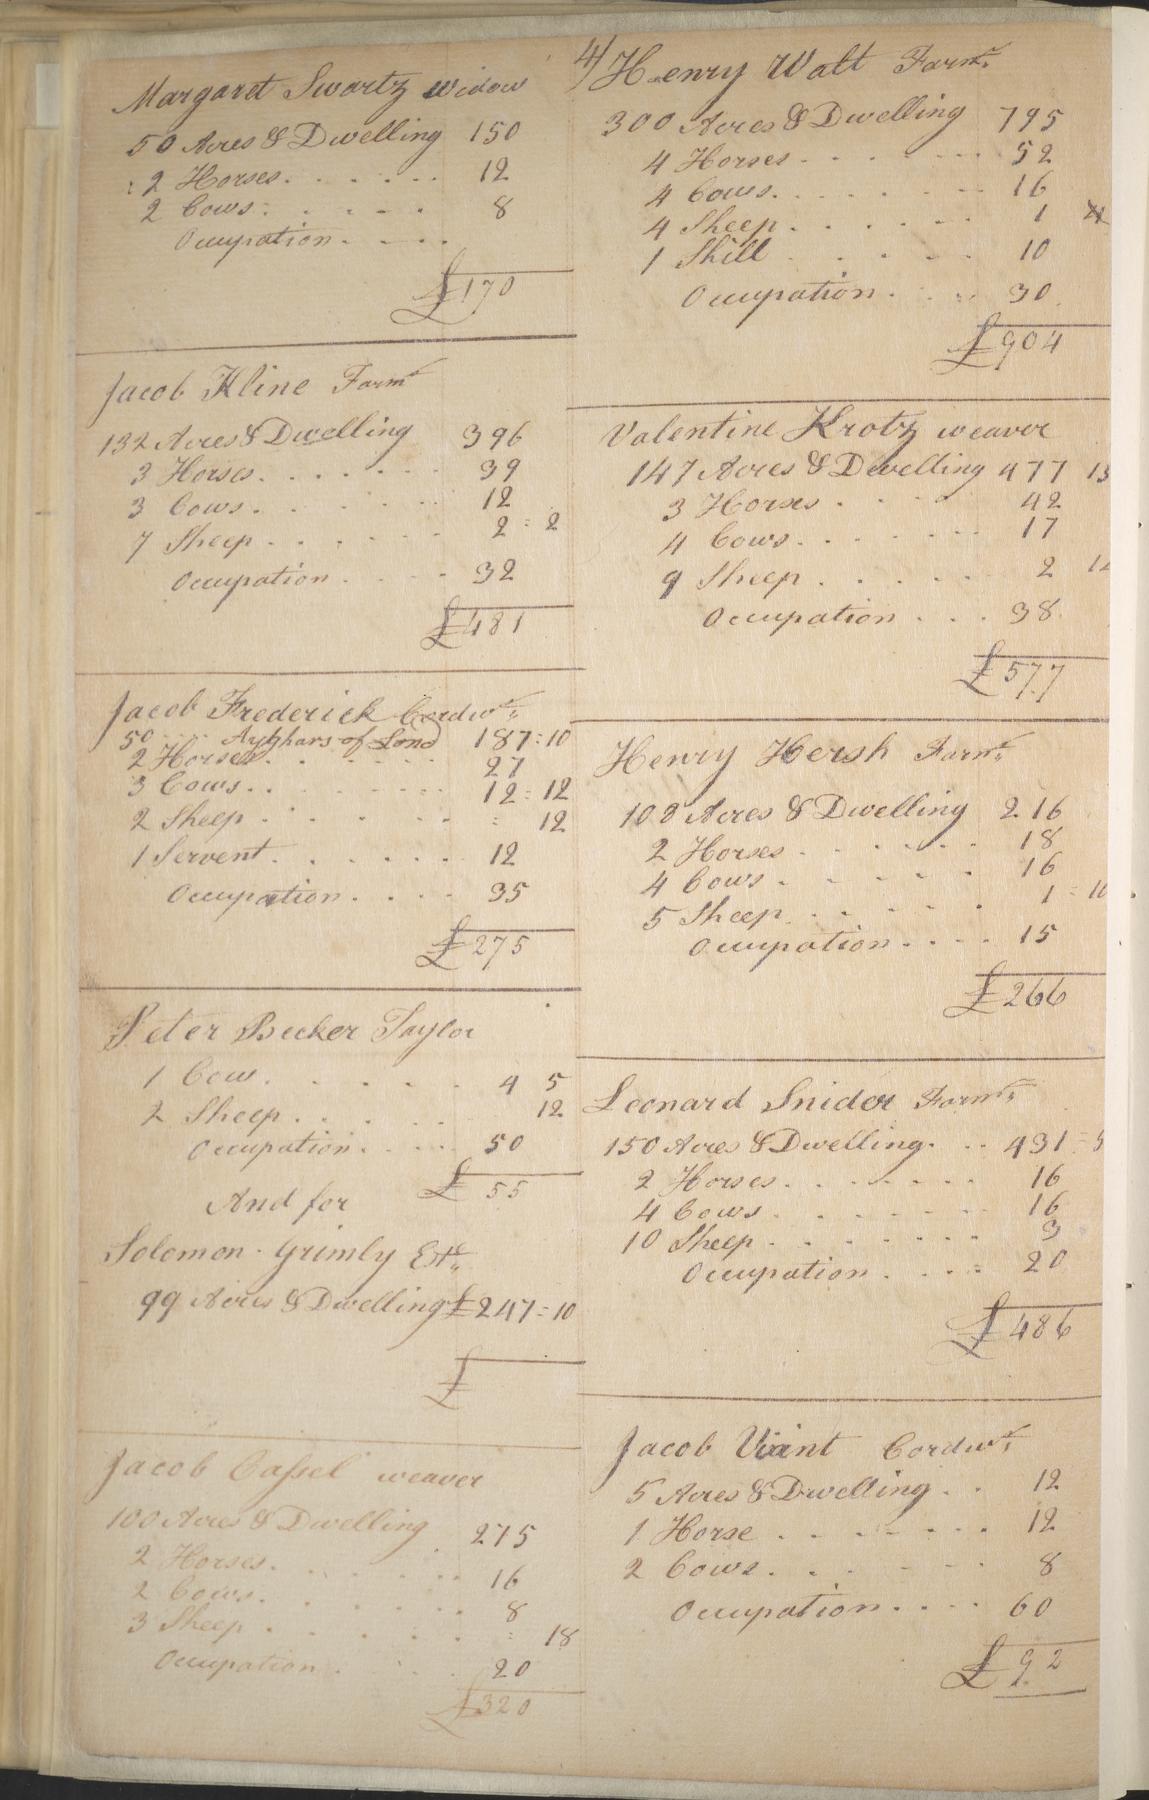 Margaret Swartz Widow
50 Acres & Dwelling 150
2 Horses 12
2 Cows 8
Occupation
£170
Jacob Kline Farmr
132 Acres & Dwelling 396
3 Horses 39
3 Cows 12
7 Sheep 2 = 2
Occupation 32
£481
Jacob Frederick Cordwr
50 of Land 187 = 10
2 Horses 27
3 Cows 12 = 12
2 Sheep = 12
1 Servent 12
Occupation 35
£275
Peter Becker Taylor
1 Cow 4 5
2 Sheep 12
Occupation 50
£55
And for
Solomon Grimly Estt
99 Acres & Dwelling £247 = 10
£
Jacob Cassel weaver
100 Acres & Dwelling 275
2 Horses 16
2 Cows 8
3 Sheep = 18
Occupation 20
£320
4/ Henry Walt Farmr
300 Acres & Dwelling 795
4 Horses 52
4 Cows 16
4 Sheep 1
1 Still 10
Occupation 30
£904
Valentine Krotz weaver
147 Acres & Dwelling 477 13
3 Horses 42
4 Cows 17
9 Sheep 2
Occupation 38
£577
Henry Hersh Farmr
108 Acres & Dwelling 216
2 Horses 18
4 Cows 16
5 Sheep 1 = 10
Occupation 15
£266
Leonard Snider Farmr
150 Acres & Dwelling 431 = 5
2 Horses 16
4 Cows 16
10 Sheep 3
Occupation 20
£486
Jacob Viant Cordwr
5 Acres & Dwelling 12
1 Horse 12
2 Cows 8
Occupation 60
£92